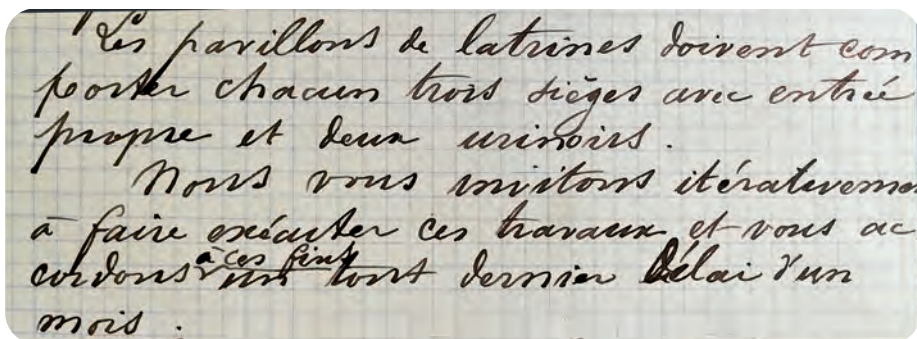 Les pavillons de latrines doivent com
porter chacun trois sièges avec entrée
propre et deux urinoirs.
Nous vous invitons itérativeme
à faire exécuter ces travaux et vous ac
cordons à ces fins un tout dernier délai d'un
mois.